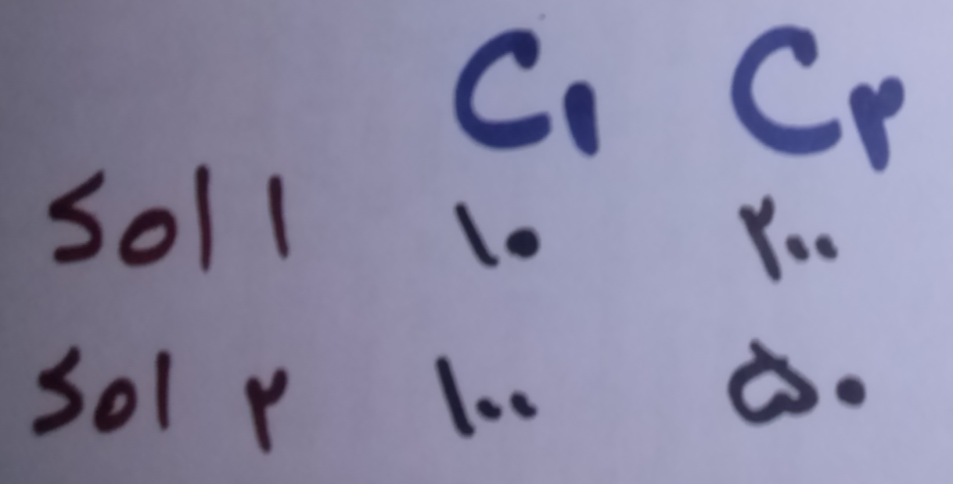 C۱ C۲
Sol ۱ ۱۰ ۲۰۰
Sol ۲ ۱۰۰ ۵۰